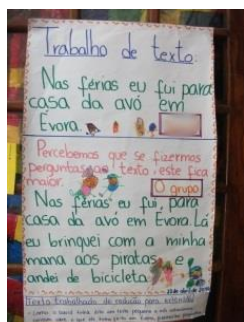 Trabalho de texto:
Nas férias eu fui para
casa da avó em
Évora.
Percebemos que se fizermos
perguntas ao texto, este fica
maior.
O grupo
Nas férias eu fui, para
casa da avó em Évora. Lá
eu brinquei com a minha
mana aos piratas e
andei de bicicleta.
Texto trabalhado